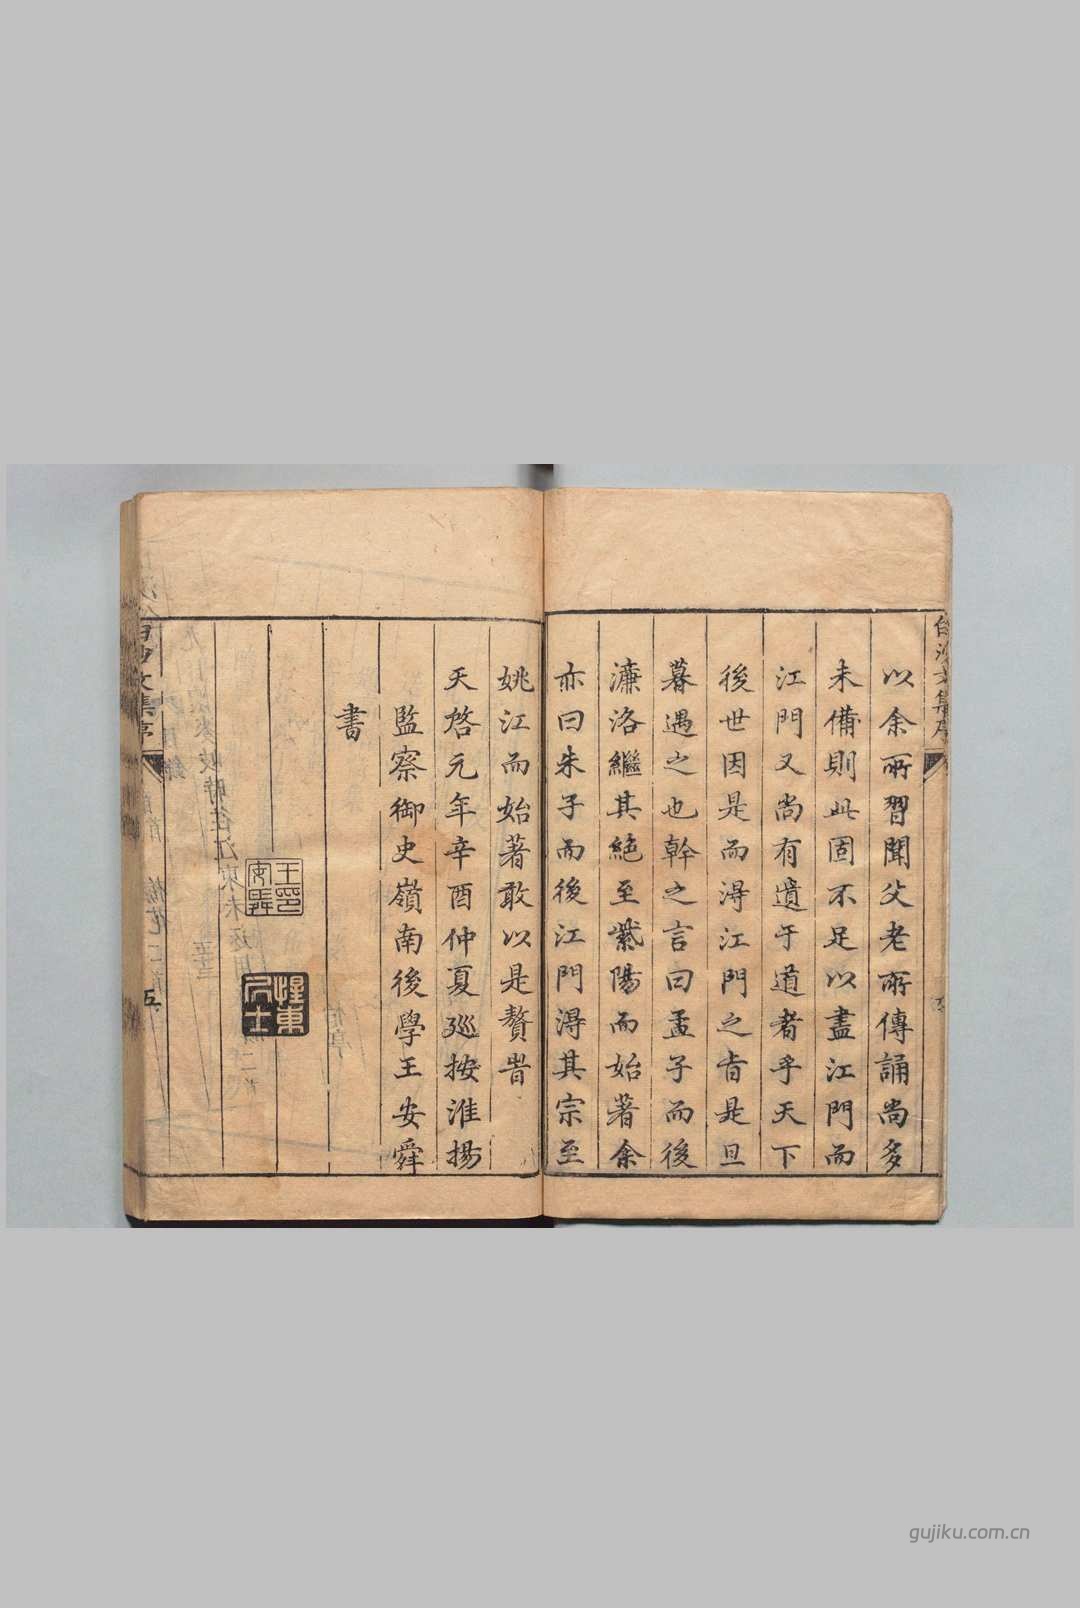 白沙文集序
以余所習聞父老所傳誦尚多
未備則此固不足以盡江門而
江門又尚有遺于道者乎天下
後世因是而淂江門之旨是旦
暮遇之也幹之言曰孟子而後
濂洛繼其絕至紫陽而始著余
亦曰朱子而後江門淂其宗至
姚江而始著敢以是贅昔
天啓元年辛酉仲夏廵按淮揚
監察御史嶺南後學王安舜
書
王安舜印
惺東居士
白沙文集序
五
gujiku.com.cn